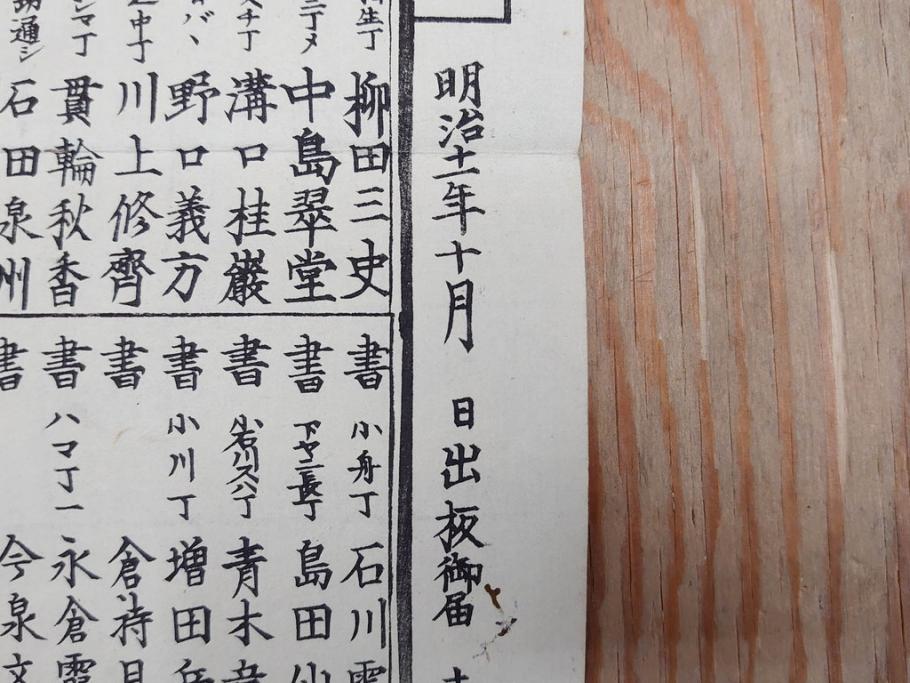 明治十一年十月 日出板御届
生丁 柳田三史
丁メ 中島翠堂
チ丁 溝口桂巌
バヽ 野口義方
中丁 川上修齊
マ丁 貫輪秋香
通シ 石田泉州
書 小舟丁 石川
書 下ヤ二長丁 島田
書 小石川スハ丁 青木
書 小川丁 増田
書 倉持
書 ハマ丁一 永倉
書 今泉文